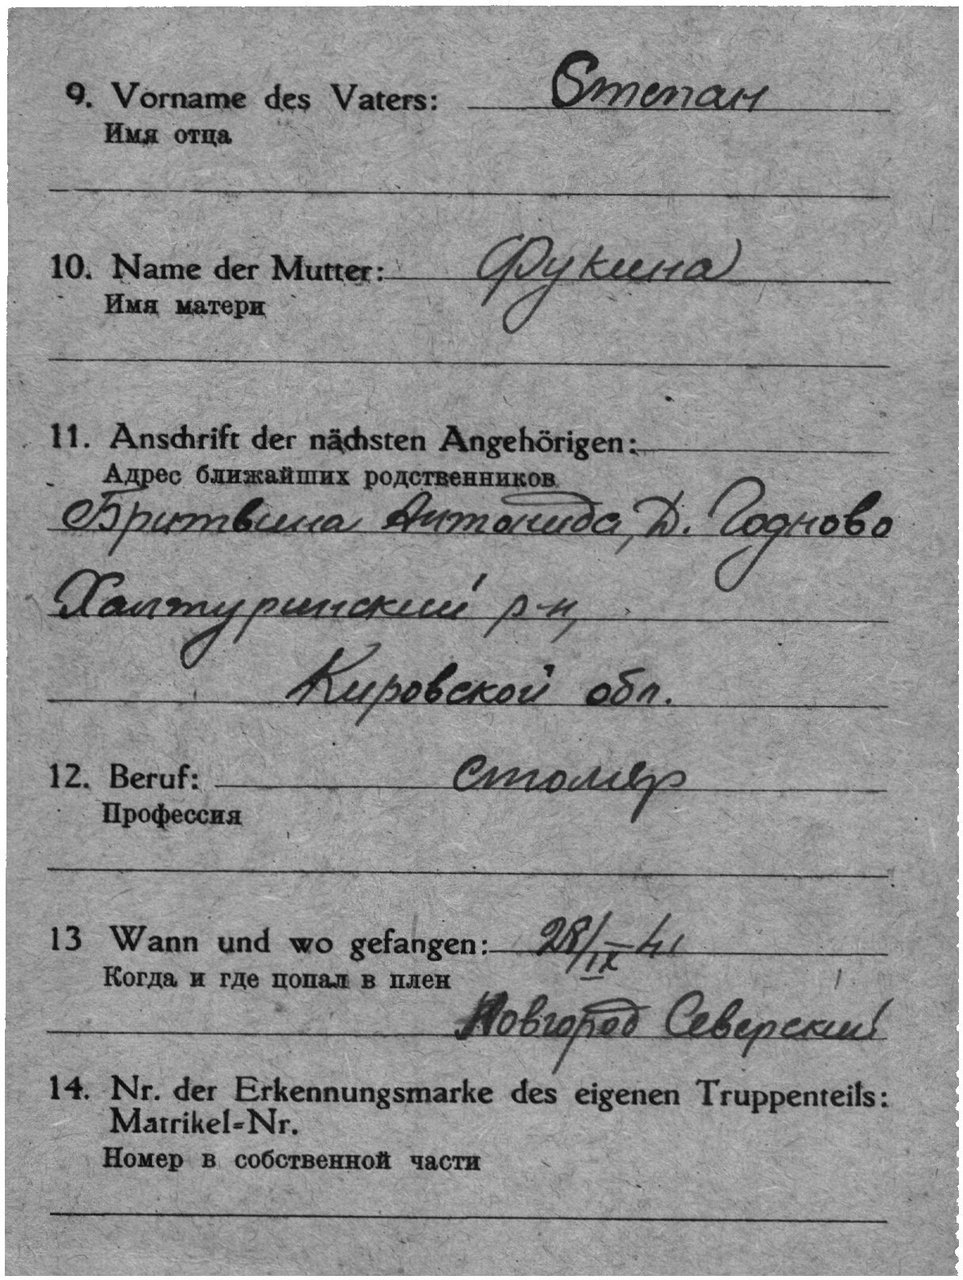 9. Vorname des Vaters: Степан
Имя отца
10. Name der Mutter: Фукина
Имя матери
11. Anschrift der nächsten Angehörigen:
Адрес ближайших родственников
Бритвина Антонида, Д. Годново
Халтуринский р-н,
Кировской обл.
12. Beruf: столяр
Профессия
13 Wann und wo gefangen: 28/IX-41
Когда и где попал в плен
Новгород Северский
14. Nr. der Erkennungsmarke des eigenen Truppenteils:
Matrikel-Nr.
Номер в собственной части